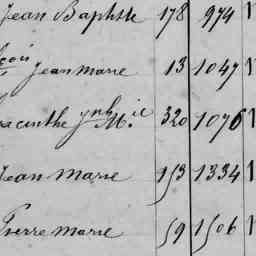 Jean Baptiste 178 974
çois Jean Marie 13 1047
acinthe Jph M.ie 320 1076
Jean Marie 153 1334
Pierre Marie 59 1506